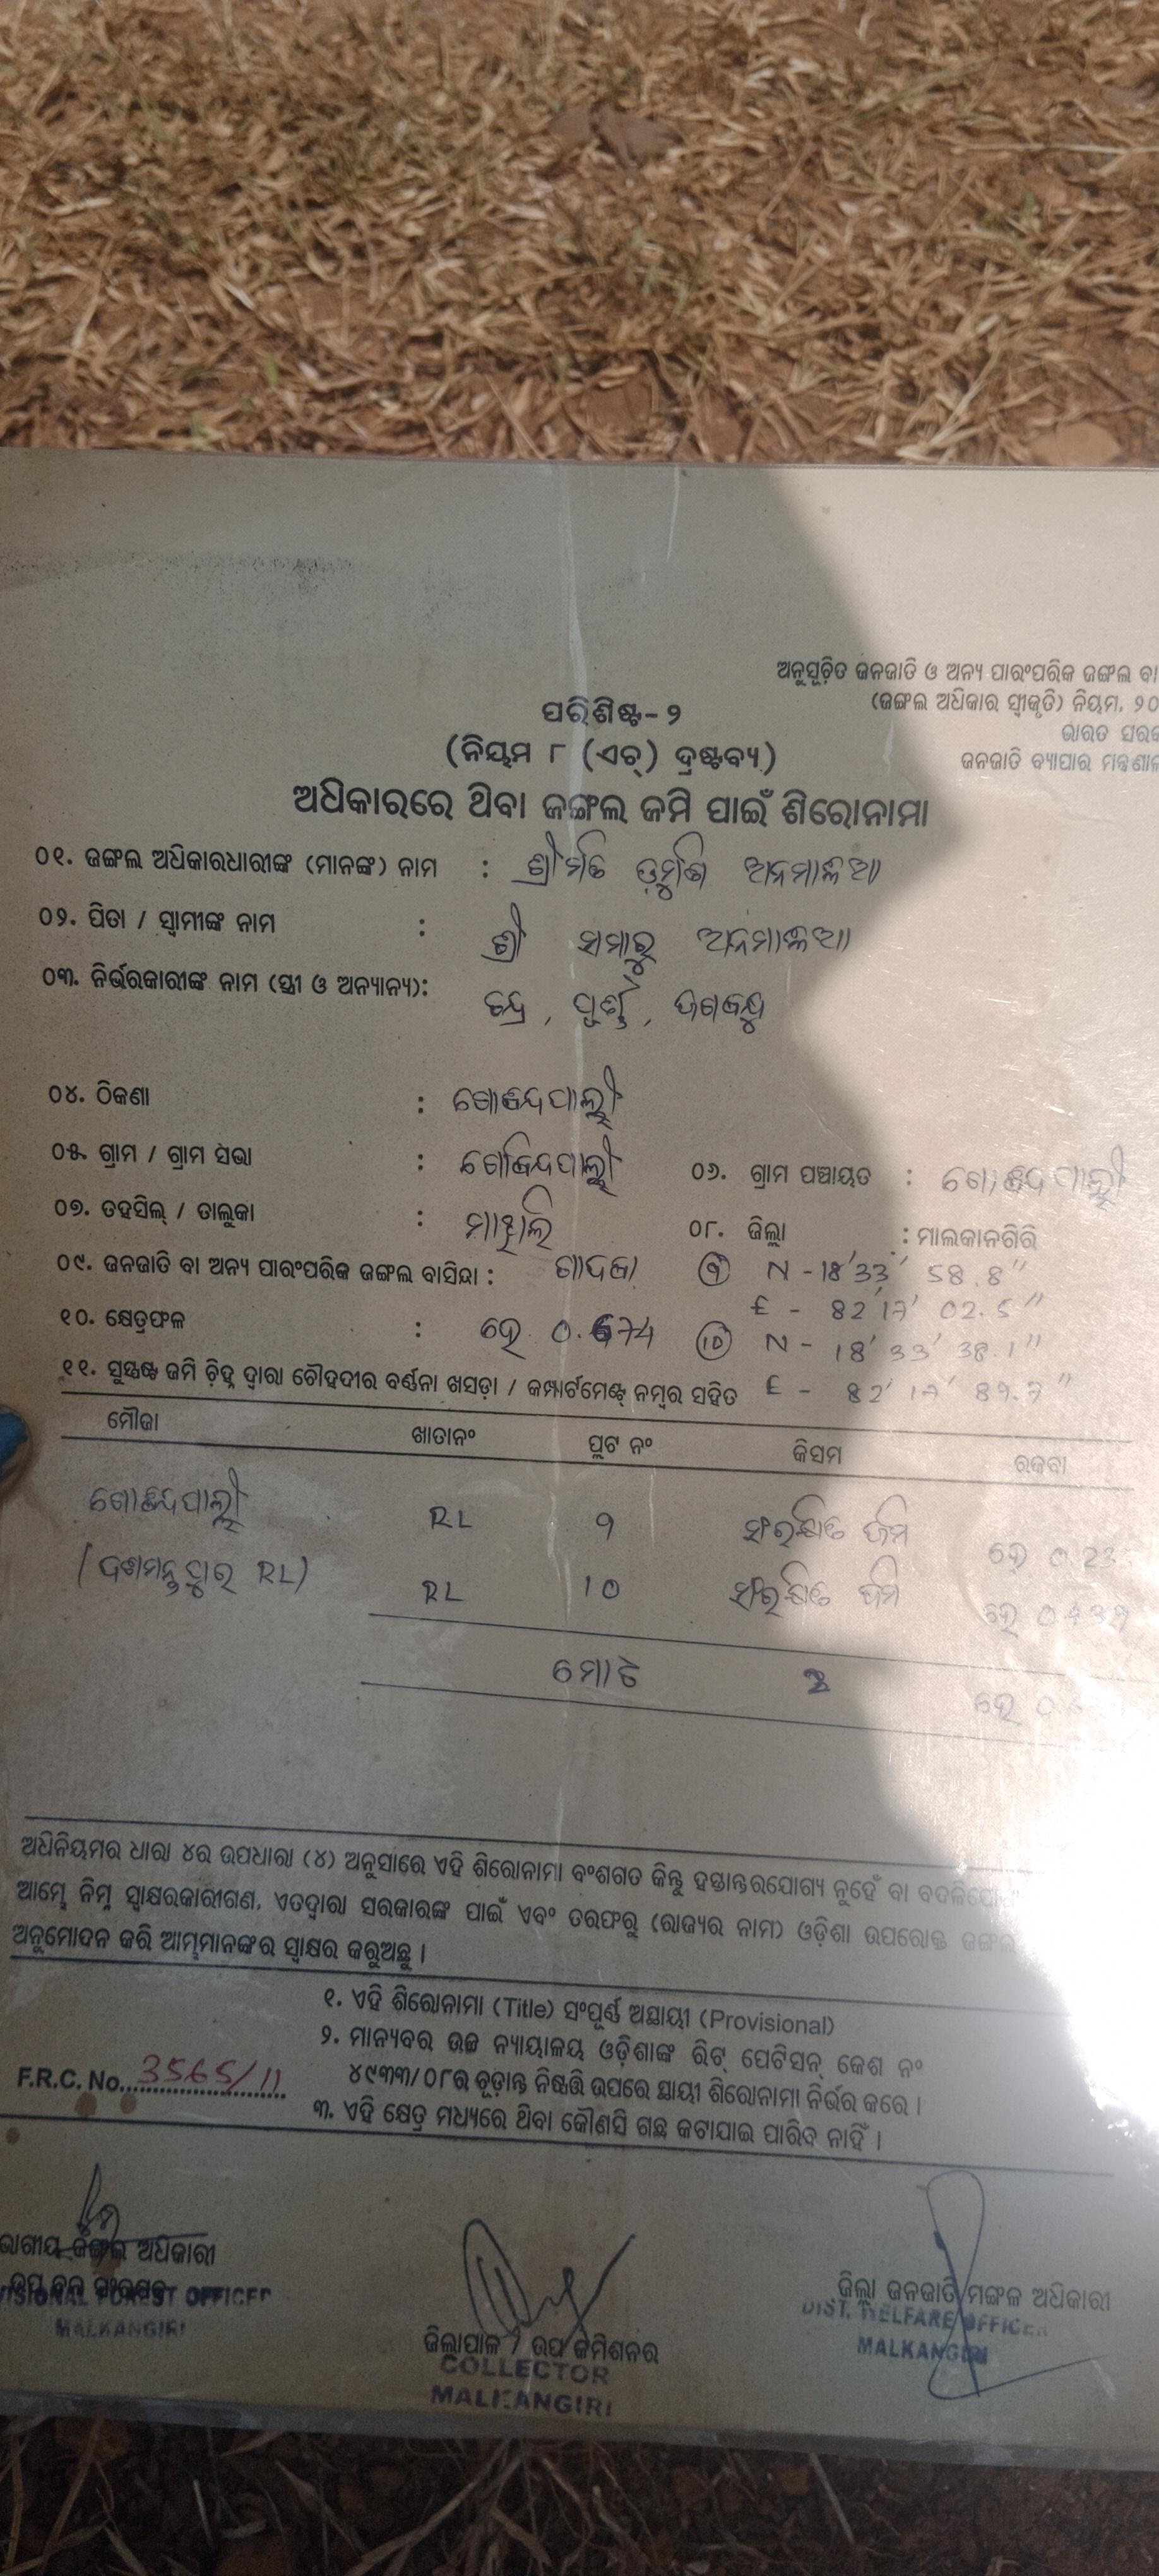 ଅନୁସୂଚିତ ଜନଜାତି ଓ ଅନ୍ୟ ପାରଂପରିକ ଜଙ୍ଗଲ ବା
(ଜଙ୍ଗଲ ଅଧିକାର ସ୍ୱୀକୃତି) ନିୟମ, ୨୦
ଭାରତ ସରକ
ଜନଜାତି ବ୍ୟାପାର ମନ୍ତ୍ରଣାଳ
ପରିଶିଷ୍ଟ-୨
(ନିୟମ ୮ (ଏଚ୍) ଦ୍ରଷ୍ଟବ୍ୟ)
ଅଧିକାରରେ ଥିବା ଜଙ୍ଗଲ ଜମି ପାଇଁ ଶିରୋନାମା
୦୧. ଜଙ୍ଗଲ ଅଧିକାରଧାରୀଙ୍କ (ମାନଙ୍କ) ନାମ : ଶ୍ରୀମତି
୦୨. ପିତା / ସ୍ୱାମୀଙ୍କ ନାମ : ଶ୍ରୀ ସମାରୁ
୦୩. ନିର୍ଭରକାରୀଙ୍କ ନାମ (ସ୍ତ୍ରୀ ଓ ଅନ୍ୟାନ୍ୟ): ଚନ୍ଦ୍ର, ପୂର୍ଣ୍ଣ, ଜଗବନ୍ଧୁ
୦୪. ଠିକଣା : ଗୋବିନ୍ଦପାଲ୍ଲୀ
୦୫. ଗ୍ରାମ / ଗ୍ରାମ ସଭା : ଗୋବିନ୍ଦପାଲ୍ଲୀ ୦୬. ଗ୍ରାମ ପଞ୍ଚାୟତ : ଗୋବିନ୍ଦପାଲ୍ଲୀ
୦୭. ତହସିଲ୍ / ତାଲୁକା : ମାଥିଲି ୦୮. ଜିଲ୍ଲା : ମାଲକାନଗିରି
୦୯. ଜନଜାତି ବା ଅନ୍ୟ ପାରଂପରିକ ଜଙ୍ଗଲ ବାସିନ୍ଦା : ଗାଦବା ⑨ N - 18' 33' 58.8"
E - 82' 17' 02.5"
୧୦. କ୍ଷେତ୍ରଫଳ : ହେ 0.674 ⑩ N - 18' 33' 38.1"
୧୧. ସୁସ୍ପଷ୍ଟ ଜମି ଚିହ୍ନ ଦ୍ୱାରା ଚୌହଦୀର ବର୍ଣ୍ଣନା ଖସଡ଼ା / କମ୍ପାର୍ଟମେଣ୍ଟ୍ ନମ୍ବର ସହିତ E - 82' 17' 89.7"
ମୌଜା ଖାତାନଂ ପ୍ଲଟ ନଂ କିସମ ରକବା
ଗୋବିନ୍ଦପାଲ୍ଲୀ RL 9 ସଂରକ୍ଷିତ ଜମି ହେ
RL) RL 10 ସଂରକ୍ଷିତ ଜମି ହେ
ମୋଟ 2 ହେ
ଅଧିନିୟମର ଧାରା ୪ର ଉପଧାରା (୪) ଅନୁସାରେ ଏହି ଶିରୋନାମା ବଂଶଗତ କିନ୍ତୁ ହସ୍ତାନ୍ତରଯୋଗ୍ୟ ନୁହେଁ ବା
ଆମ୍ଭେ ନିମ୍ନ ସ୍ୱାକ୍ଷରକାରୀଗଣ, ଏତଦ୍ୱାରା ସରକାରଙ୍କ ପାଇଁ ଏବଂ ତରଫରୁ (ରାଜ୍ୟର ନାମ) ଓଡ଼ିଶା ଉପରୋକ୍ତ
ଅନୁମୋଦନ କରି ଆମ୍ଭମାନଙ୍କର ସ୍ୱାକ୍ଷର କରୁଅଛୁ ।
୧. ଏହି ଶିରୋନାମା (Title) ସଂପୂର୍ଣ୍ଣ ଅସ୍ଥାୟୀ (Provisional)
୨. ମାନ୍ୟବର ଉଚ୍ଚ ନ୍ୟାୟାଳୟ ଓଡ଼ିଶାଙ୍କ ରିଟ୍ ପେଟିସନ୍ କେଶ ନଂ
୪୯୩୩/୦୮ର ଚୂଡ଼ାନ୍ତ ନିଷ୍ପତ୍ତି ଉପରେ ସ୍ଥାୟୀ ଶିରୋନାମା ନିର୍ଭର କରେ ।
F.R.C. No. 3565/11
୩. ଏହି କ୍ଷେତ୍ର ମଧ୍ୟରେ ଥିବା କୌଣସି ଗଛ କଟାଯାଇ ପାରିବ ନାହିଁ ।
ଭାଗୀୟ ଜଙ୍ଗଲ ଅଧିକାରୀ
VISIONAL FOREST OFFICER
MALKANGIRI
ଜିଲ୍ଲାପାଳ / ଉପ କମିଶନର
COLLECTOR
MALKANGIRI
ଜିଲ୍ଲା ଜନଜାତି ମଙ୍ଗଳ ଅଧିକାରୀ
DIST. WELFARE OFFICER
MALKANGIRI